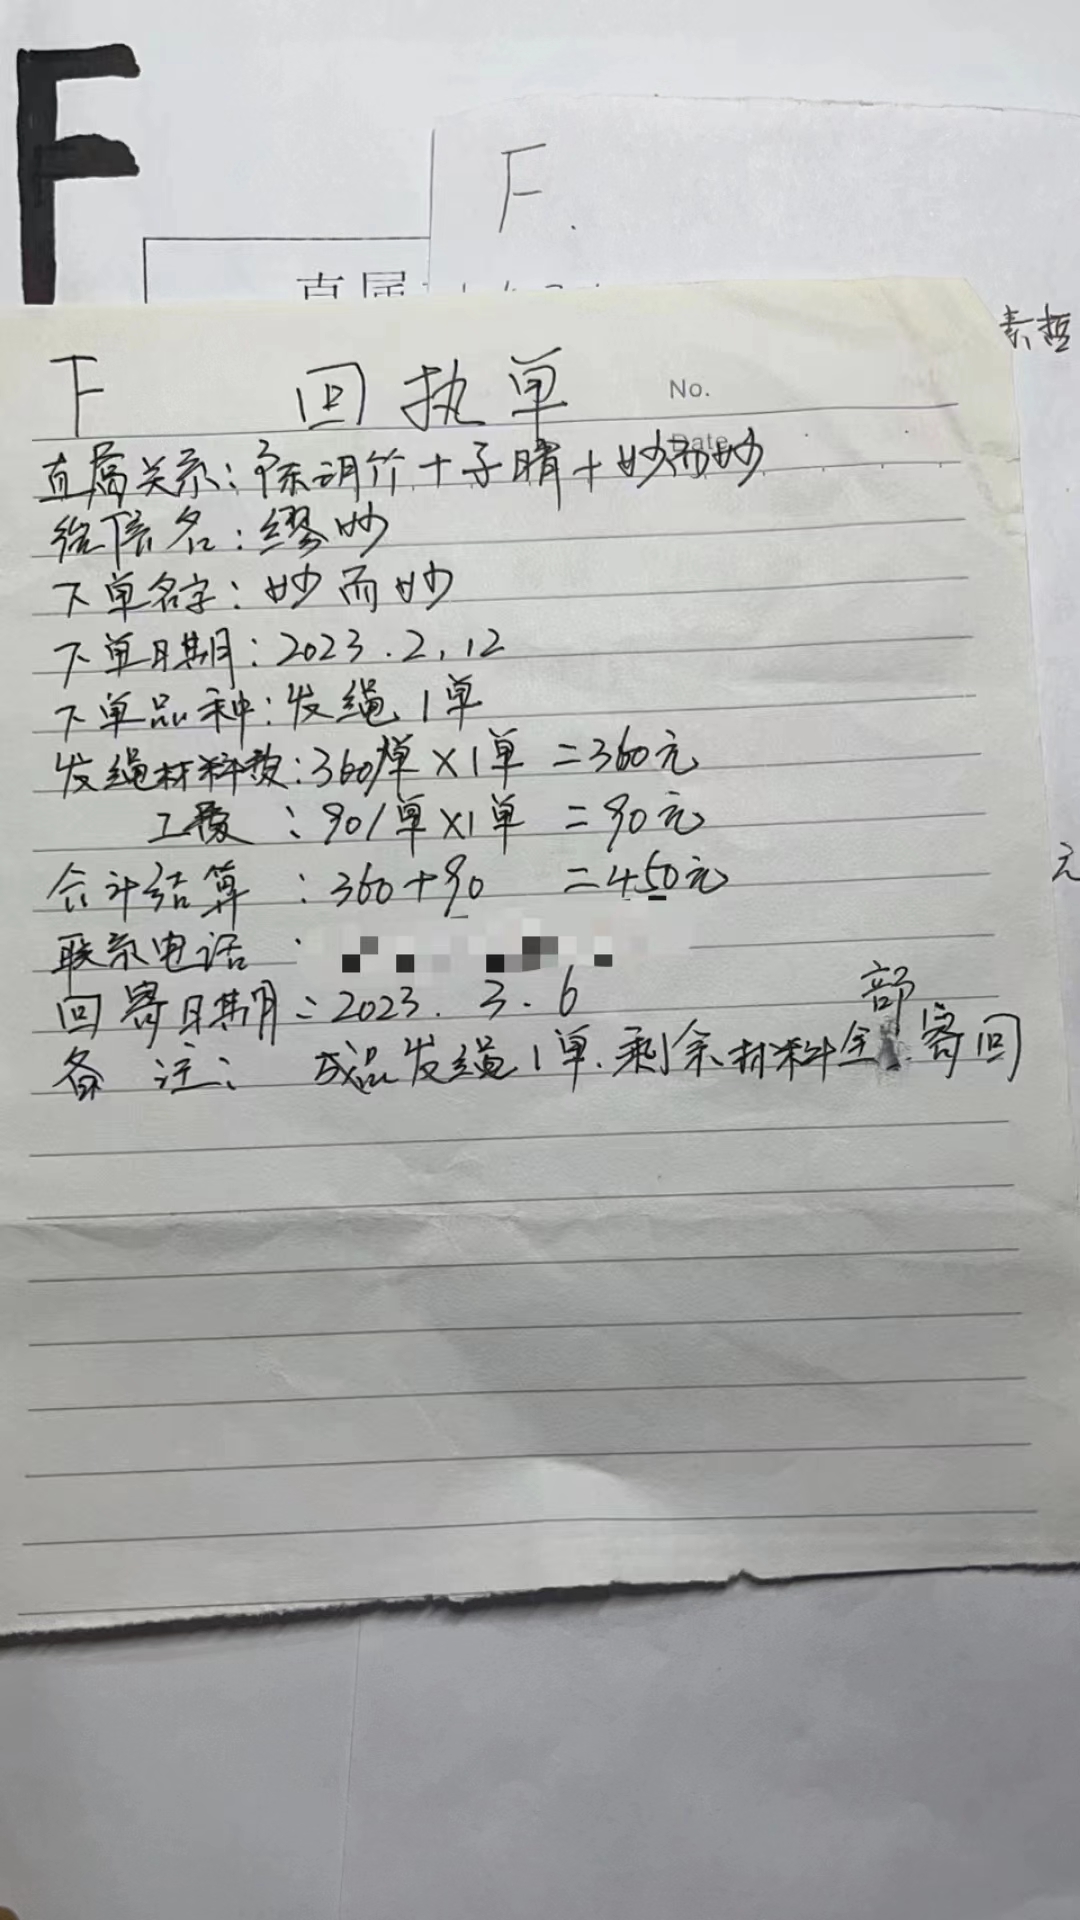 F
F.
直属
素哲
F 回执单 No.
Date
直属关系:徐湖竹+子晴+妙而妙
微信名:缪妙
下单名字:妙而妙
下单日期:2023.2.12
下单品种:发绳1单
发绳材料费:360/单×1单=360元
工费:90/单×1单=90元
合计结算:360+90=450元
元
联系电话:
回寄日期:2023.3.6
备注:成品发绳1单.剩余材料全部寄回